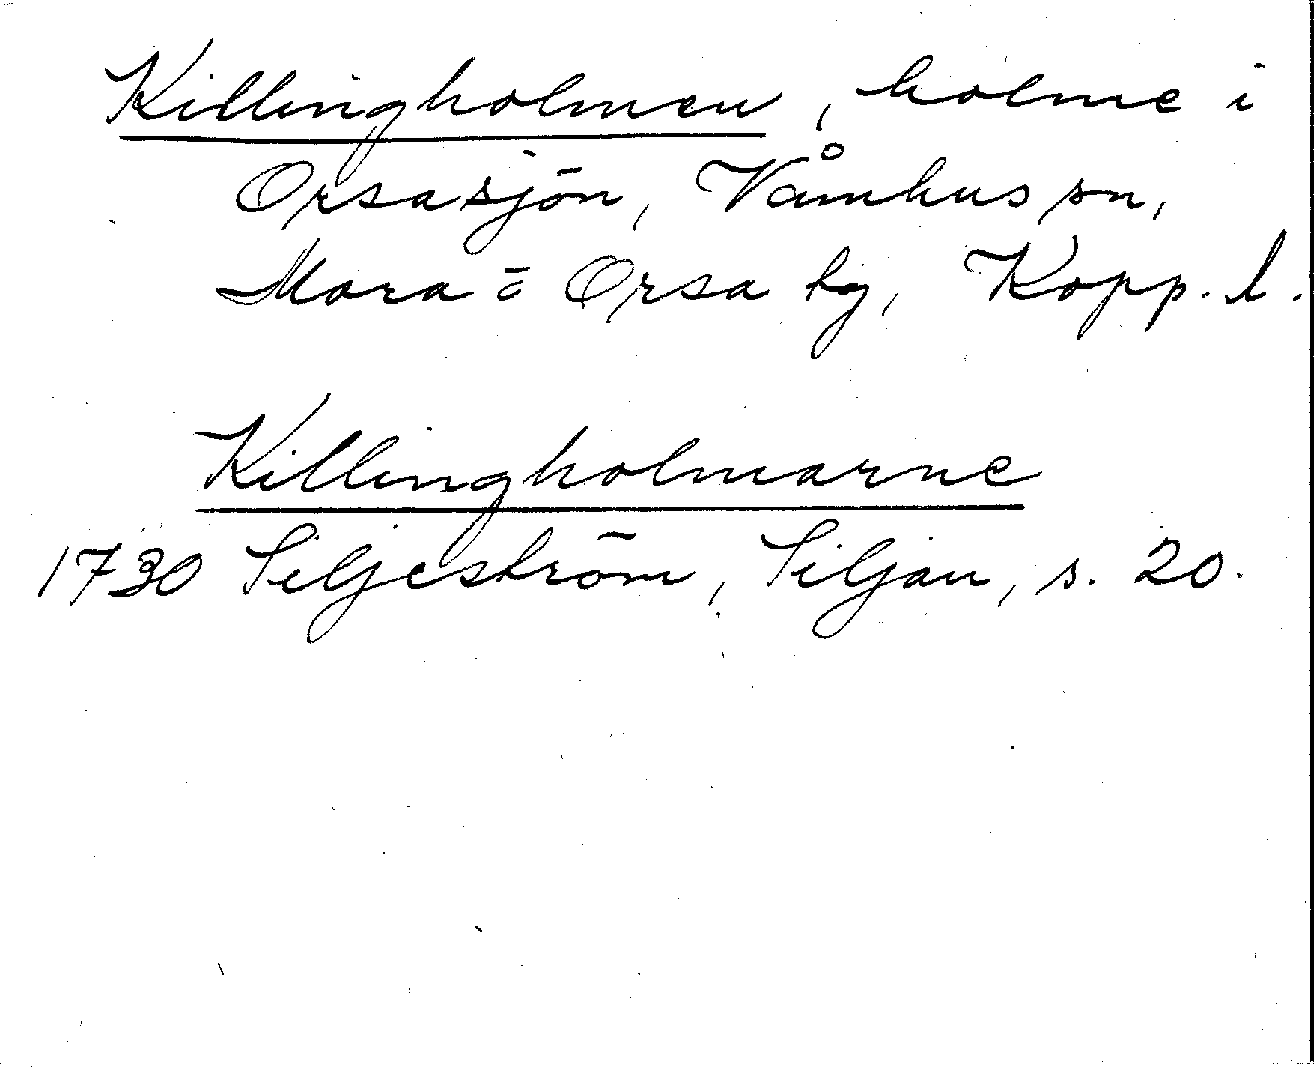 Killingholmen, holme i
Orsasjön, Våmhus sn,
Mora o Orsa tg, Kopp. l.
Killingholmarne
1730 Siljeström, Siljan, s. 20.